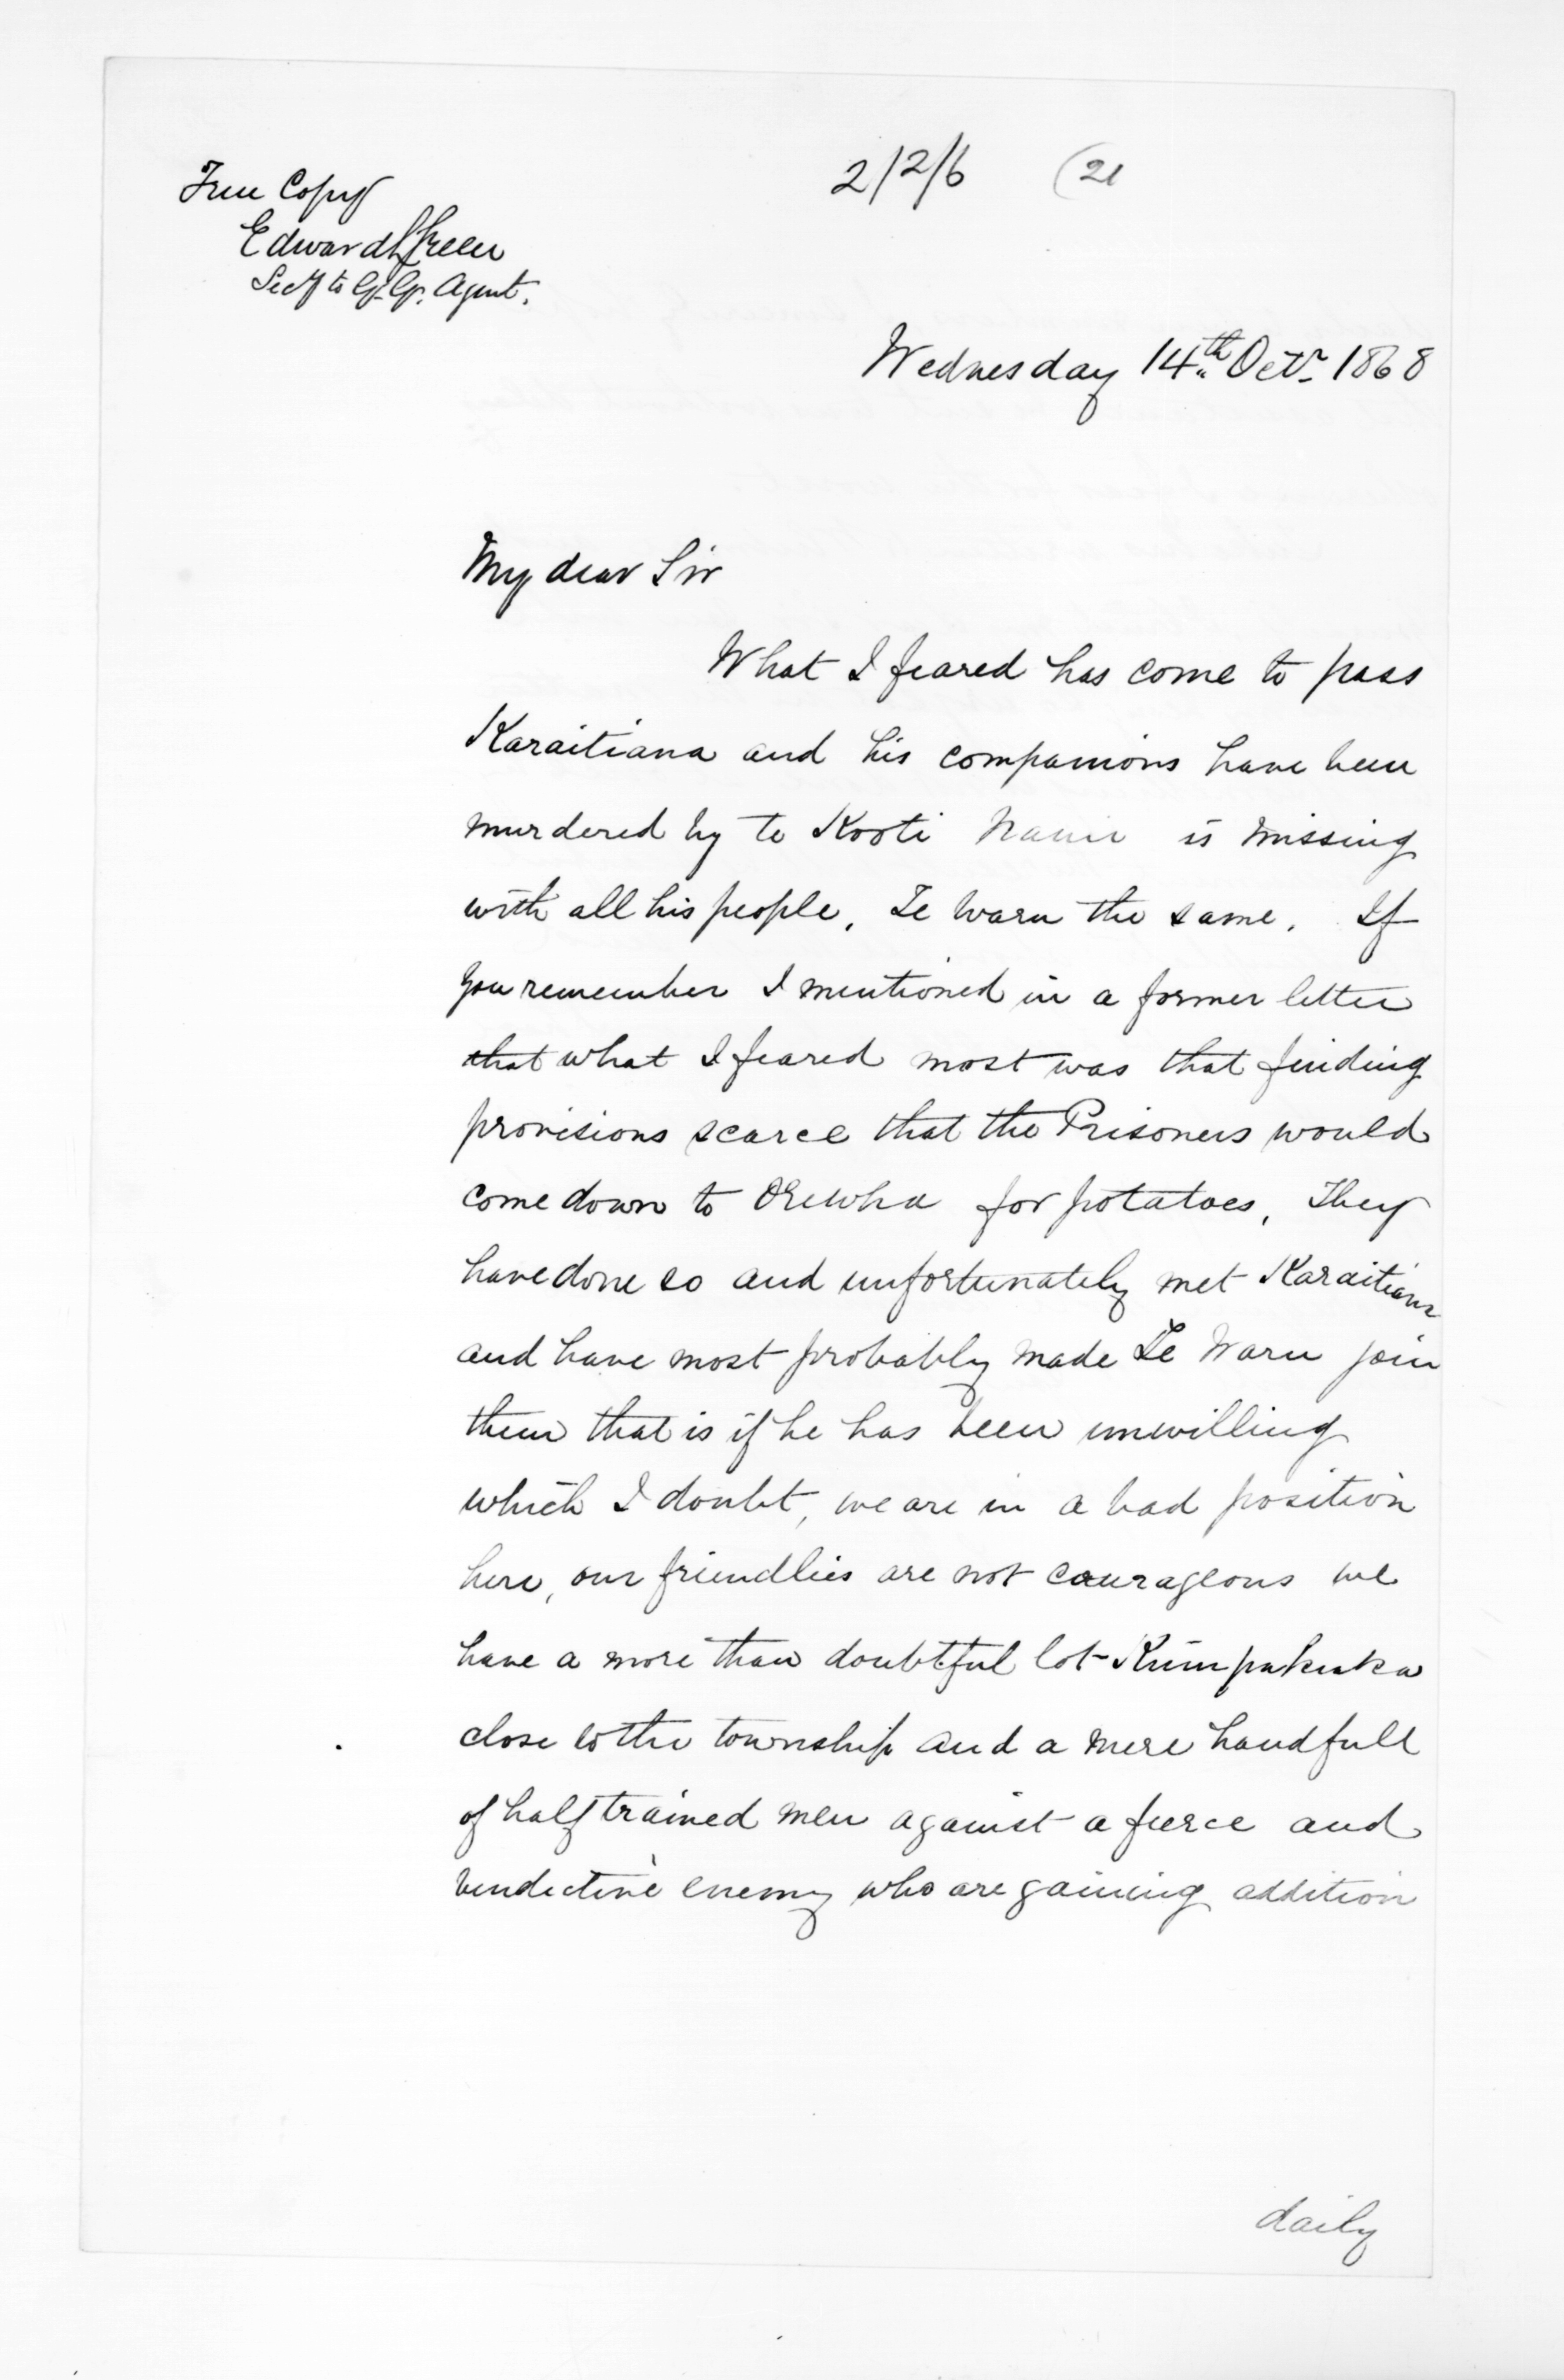 True Copy
Edward L Green
Secy to G. G. Agent.
2/2/6 (21
Wednesday 14th Octr 1868
My dear Sir
What I feared has come to pass
Karaitiana and his companions have been
murdered by te Kooti is missing
with all his people, Te Waru the same. If
you remember I mentioned in a former letter
that what I feared most was that finding
provisions scarce that the Prisoners would
come down to for potatoes, They
have done so and unfortunately met Karaitiana
and have most probably made Te Waru join
them that is if he has been unwilling
which I doubt, we are in a bad position
here, our friendlies are not courageous we
have a more than doubtful lot
close to the township and a mere handfull
of half trained men against a fierce and
vindictive enemy who are gaining addition
daily